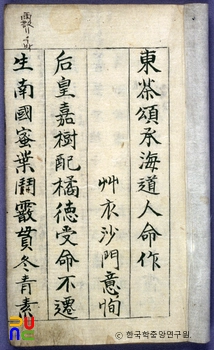 東茶頌承海道人命作
艸衣沙門意恂
后皇嘉樹配橘德受命不遷
生南國蜜葉鬪霰貫冬青素
한국학중앙연구원